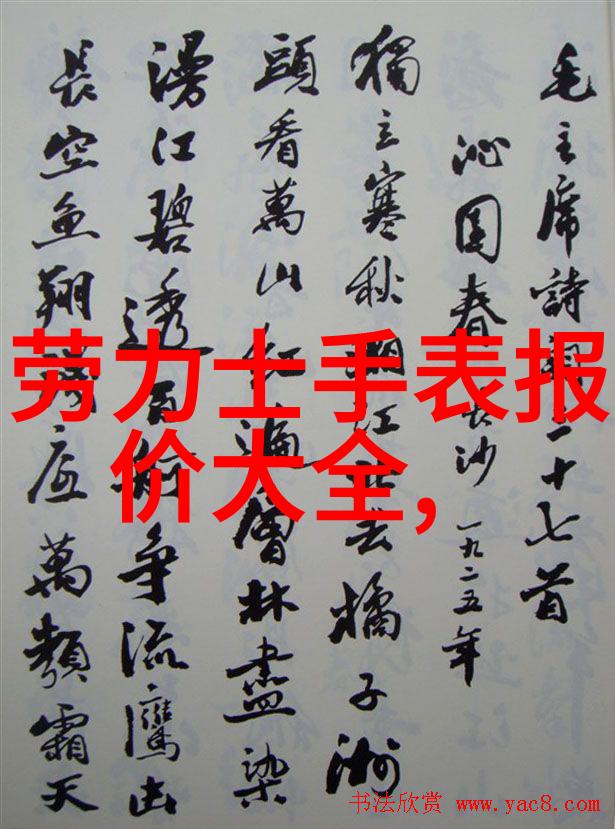 毛主席詩詞三十七首
沁園春 長沙 一九二五年
獨立寒秋湘江北去橘子洲
頭看萬山紅遍層林盡染
漫江碧透百舸爭流鷹击
長空魚翔淺底萬類霜天
劳力士手表报
价大全,
书法欣赏 www.yac8.com